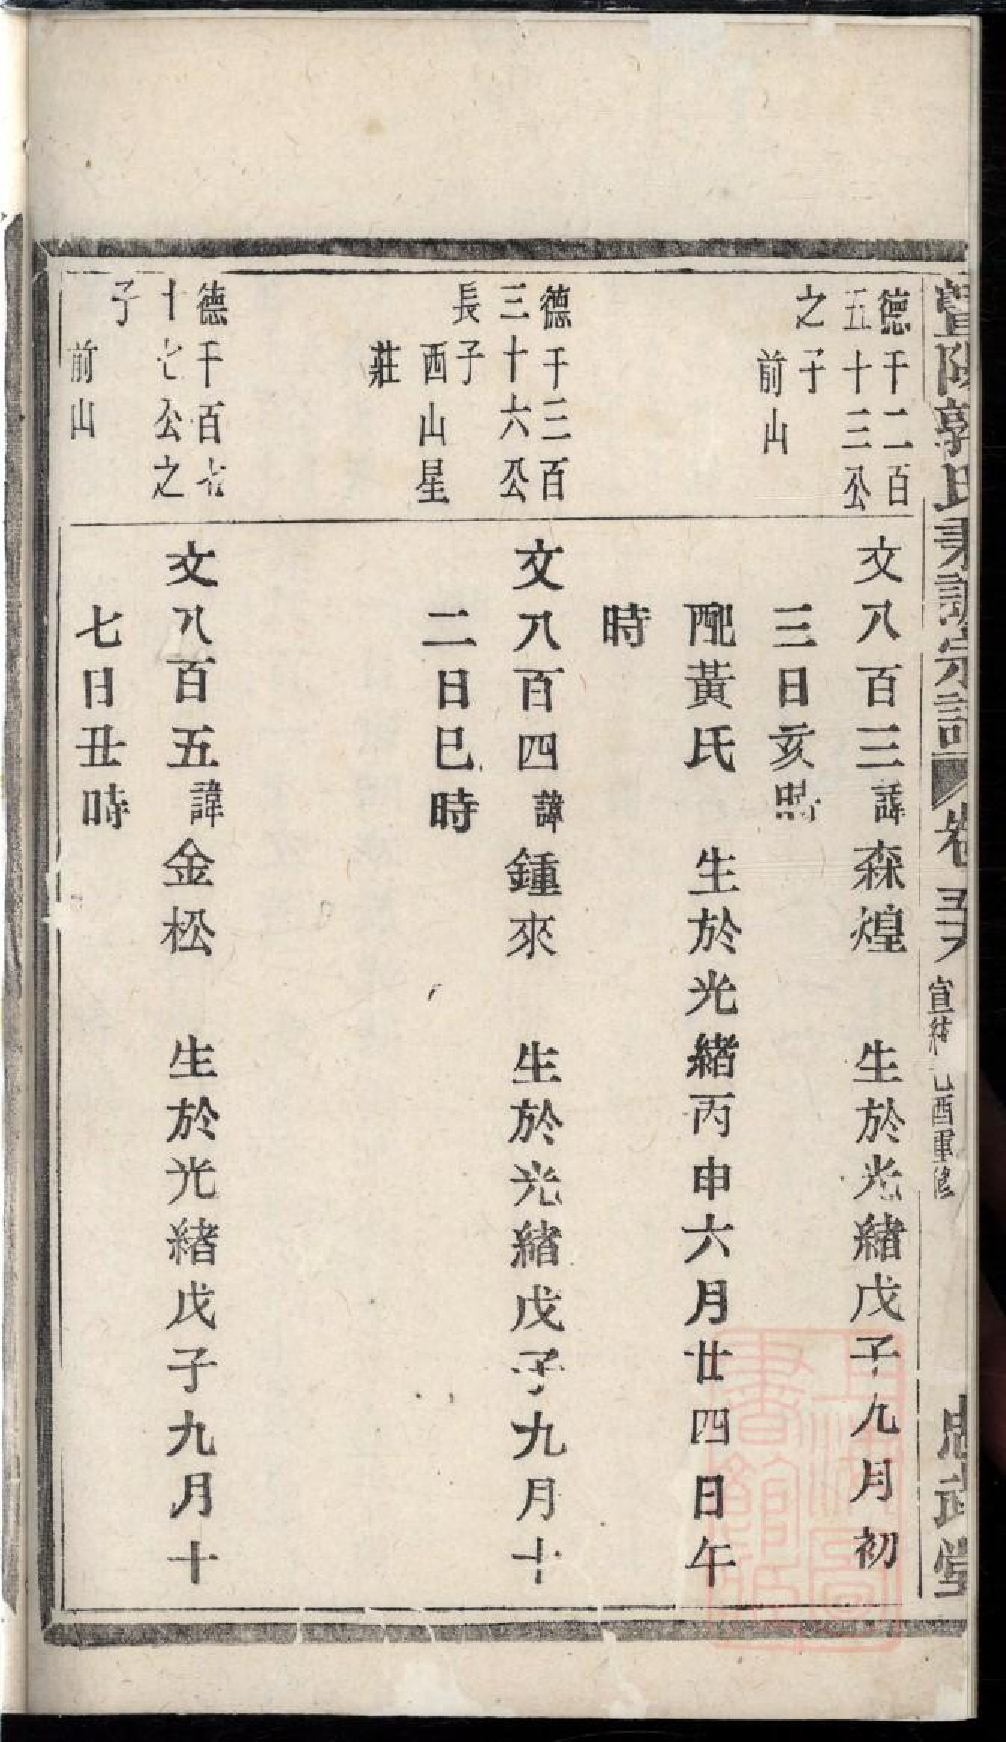 暨陽郭氏重訂宗譜 卷 宣統己酉重修 忠武堂
德千二百
五十三公
之子
前山
文八百三諱森煌 生於光緒戊子九月初
三日亥時
配黃氏 生於光緒丙申六月廿四日午
時
德千三百
三十六公
長子
西山星
莊
文八百四諱鍾來 生於光緒戊子九月十
二日巳時
德千百七
十七公之
子
前山
文八百五諱金松 生於光緒戊子九月十
七日丑時